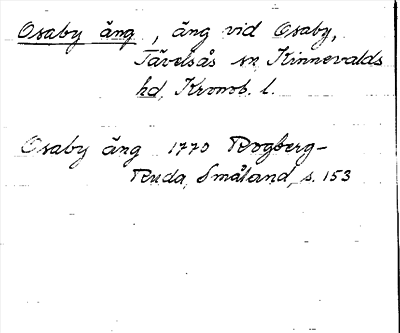 Osaby äng, äng vid Osaby,
Tävelsås sn, Kinnevalds
hd, Kronob. l.
Osaby äng 1770 Rogberg-
Ruda, Småland, s. 153